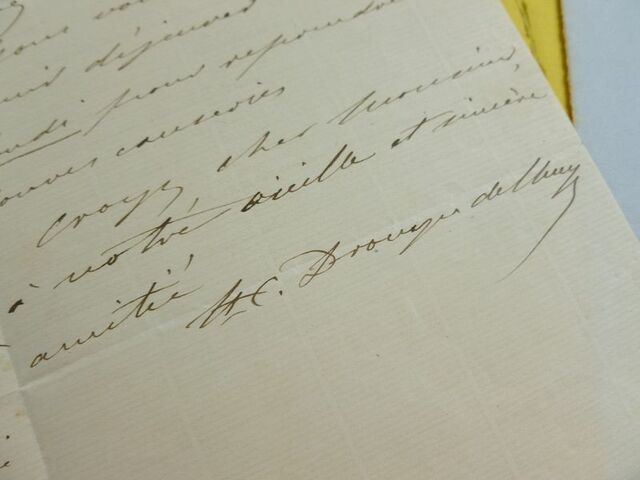 déjeuner
pour répondre
causeries
croyez, cher Monsieur,
à notre vieille et sincère
amitié
H C. Drouyn de Lhuys